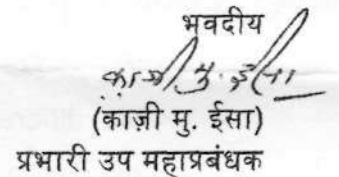 भवदीय
काज़ी मु. ईसा
(काज़ी मु. ईसा)
प्रभारी उप महाप्रबंधक